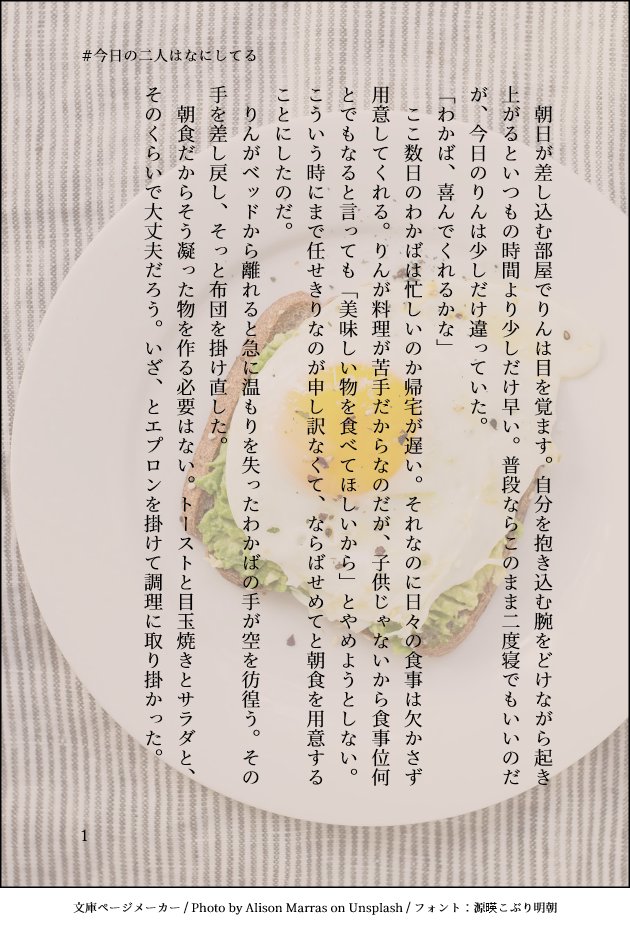 #今日の二人はなにしてる
　朝日が差し込む部屋でりんは目を覚ます。自分を抱き込む腕をどけながら起き
上がるといつもの時間より少しだけ早い。普段ならこのまま二度寝でもいいのだ
が、今日のりんは少しだけ違っていた。
「わかば、喜んでくれるかな」
　ここ数日のわかばは忙しいのか帰宅が遅い。それなのに日々の食事は欠かさず
用意してくれる。りんが料理が苦手だからなのだが、子供じゃないから食事位何
とでもなると言っても「美味しい物を食べてほしいから」とやめようとしない。
こういう時にまで任せきりなのが申し訳なくて、ならばせめてと朝食を用意する
ことにしたのだ。
　りんがベッドから離れると急に温もりを失ったわかばの手が空を彷徨う。その
手を差し戻し、そっと布団を掛け直した。
　朝食だからそう凝った物を作る必要はない。トーストと目玉焼きとサラダと、
そのくらいで大丈夫だろう。いざ、とエプロンを掛けて調理に取り掛かった。
1
文庫ページメーカー / Photo by Alison Marras on Unsplash / フォント：源暎こぶり明朝